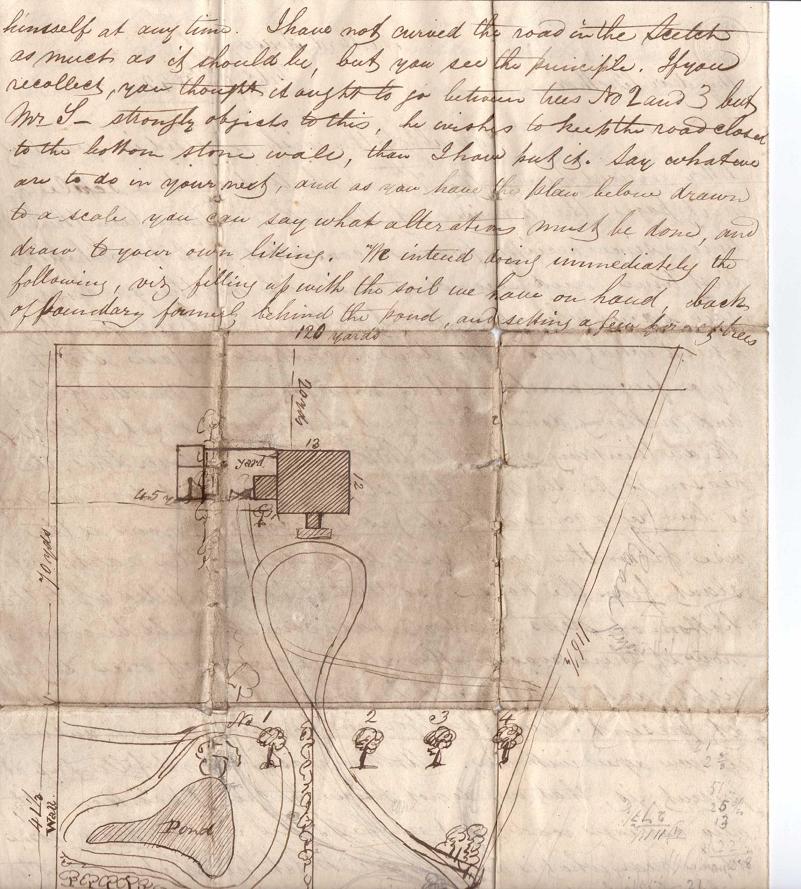 himself at any time. I have not curved the road in the Sketch
as much as it should be, but you see the principle. If you
recollect, you thought it ought to go between trees No 2 and 3 but
Mr S— strongly objects to this, he wishes to keep the road closer
to the bottom stone wall, than I have put it. Say what we
are to do in your next, and as you have the plan below drawn
to a scale you can say what alterations must be done, and
draw to your own liking. We intend doing immediately the
following, viz filling up with the soil we have on hand, back
of boundary formerly behind the pond, and setting a few forest trees
120 yards
20 yds
13
yard
12
45
70 yds
116½
No 1 2 3 4
47½
Wall
Pond